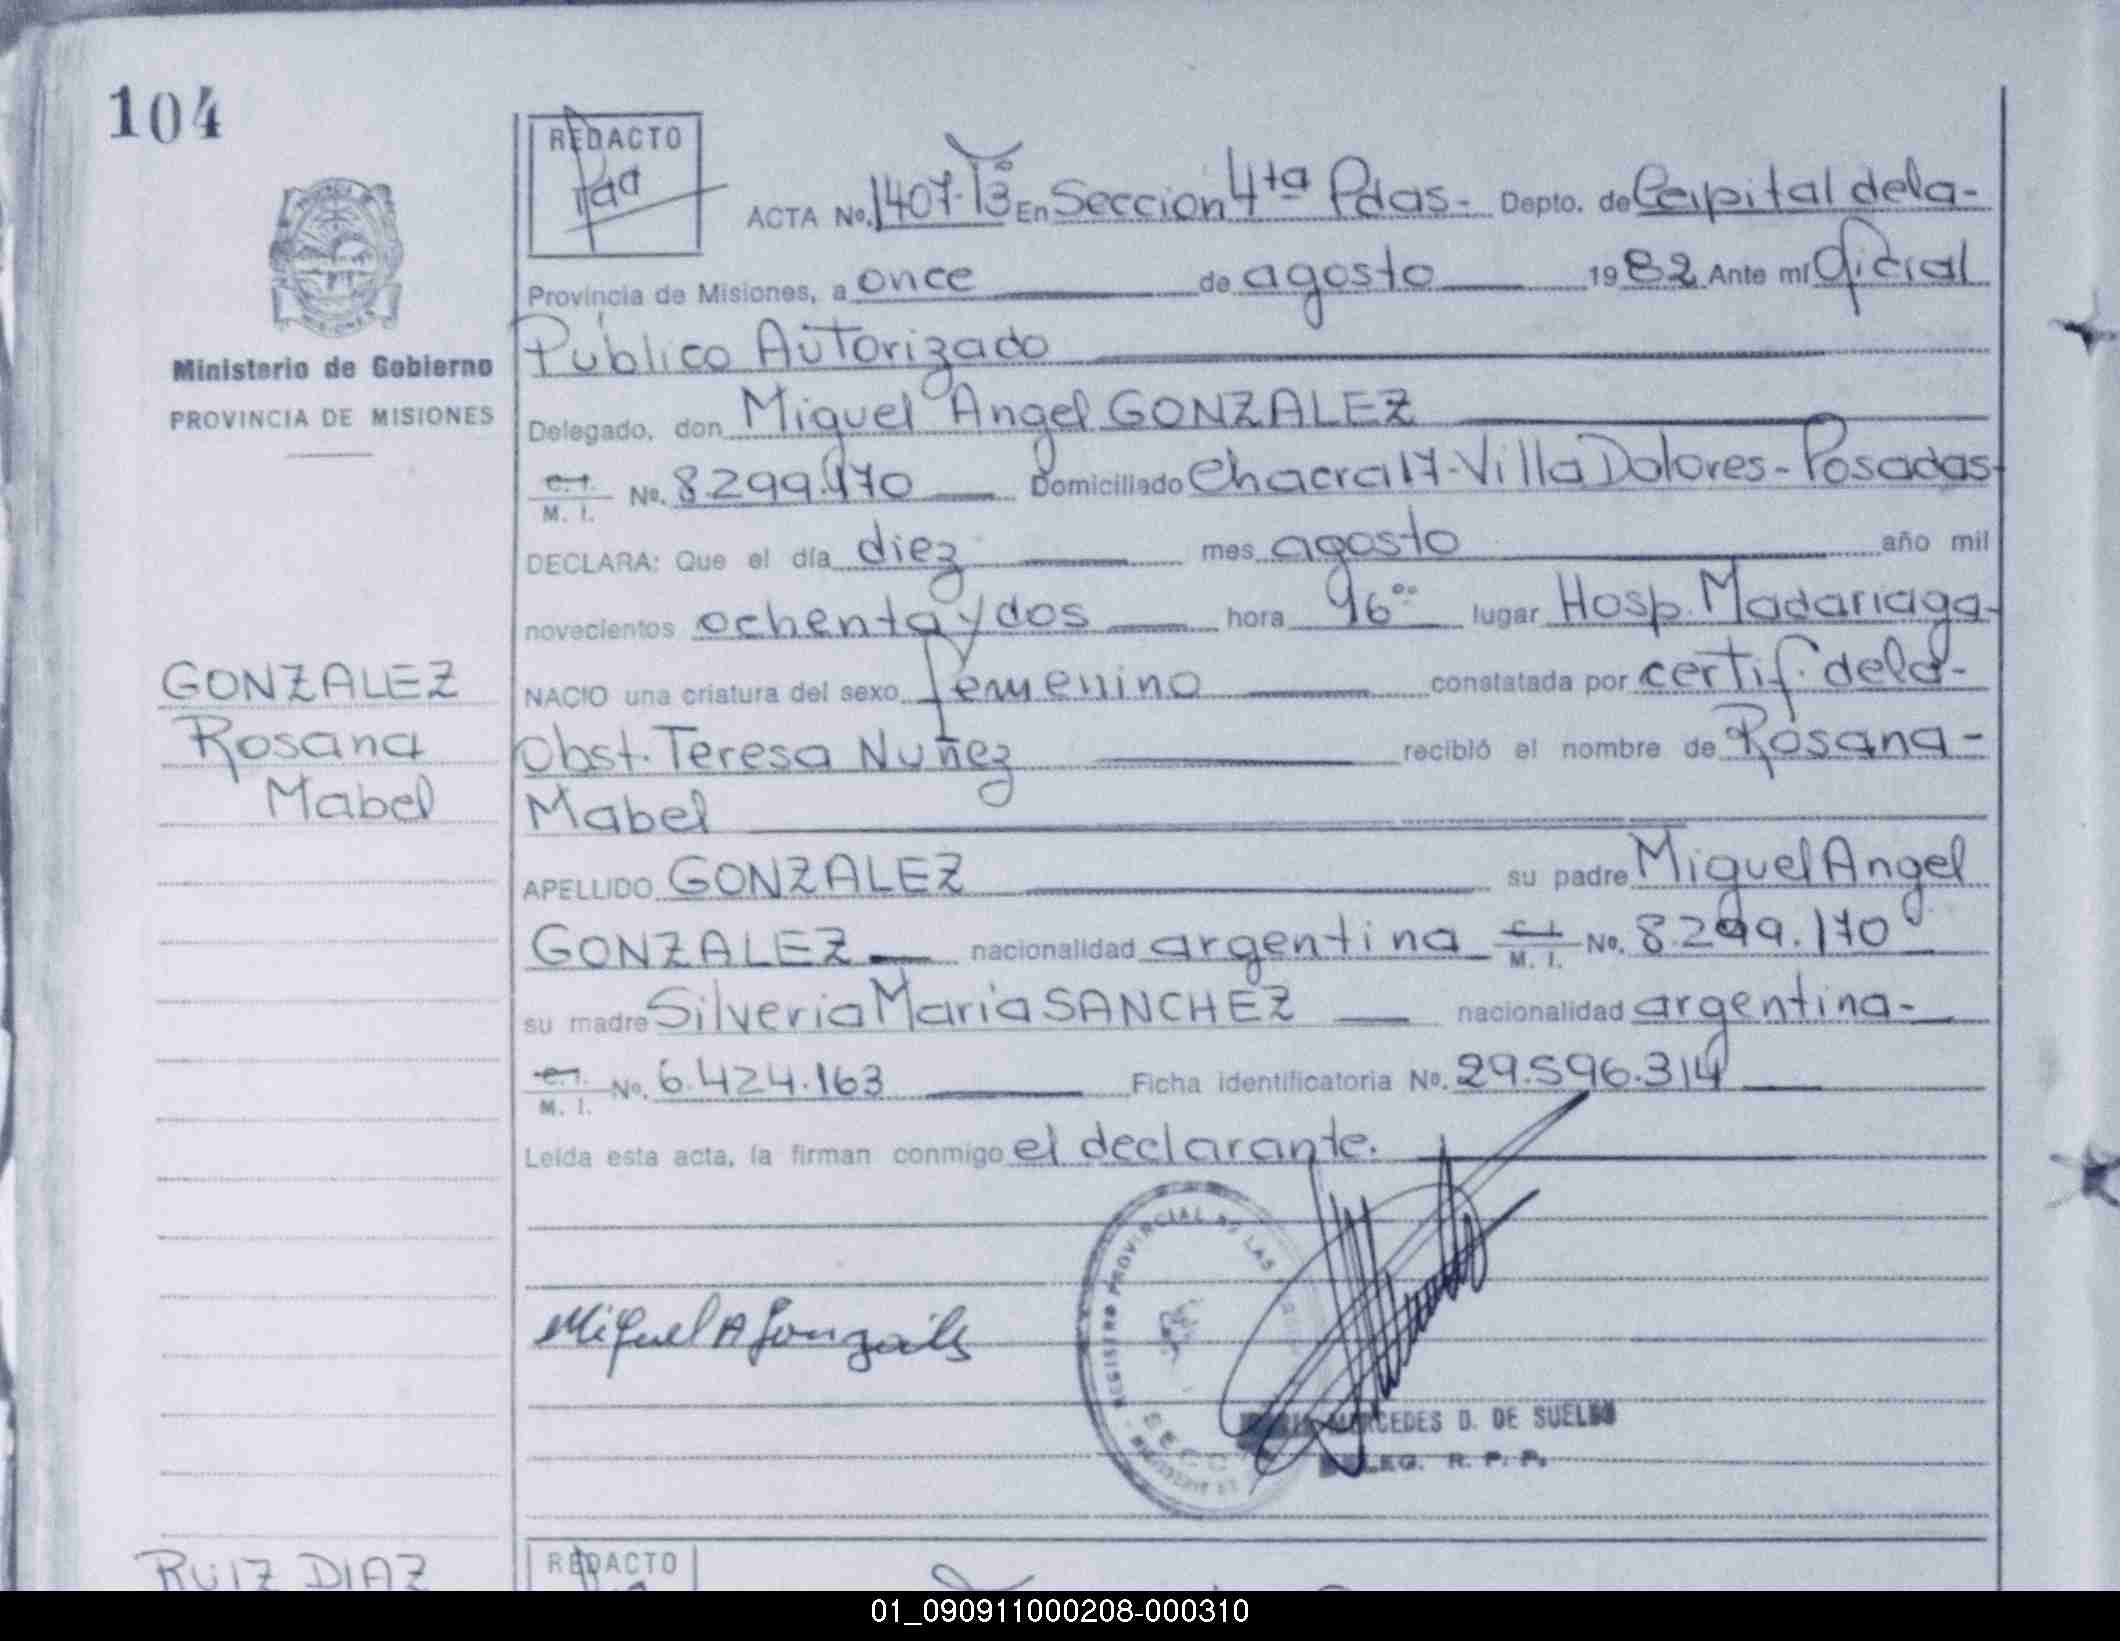 104
REDACTO
ACTA No. 1407-Tº3 En Seccion 4ta Pdas- Depto. de Capital dela-
Provincia de Misiones, a once de agosto 1982 Ante mí Oficial
Público Autorizado
Ministerio de Gobierno
PROVINCIA DE MISIONES
Delegado, don Miguel Angel GONZALEZ
C. I. M. I. No. 8.299.170 Domiciliado Chacra 17-Villa Dolores-Posadas-
DECLARA: Que el día diez mes agosto año mil
novecientos ochenta y dos hora 96°° lugar Hosp. Madariaga-
GONZALEZ
Rosana
Mabel
NACIO una criatura del sexo femenino constatada por certif. dela-
Obst. Teresa Nuñez recibió el nombre de Rosana-
Mabel
APELLIDO GONZALEZ su padre Miguel Angel
GONZALEZ nacionalidad argentina C. I. M. I. No. 8.299.170
su madre Silveria Maria SANCHEZ nacionalidad argentina-
C. I. M. I. No. 6.424.163 Ficha identificatoria No. 29.596.314
Leída esta acta, la firman conmigo el declarante.
REGISTRO PROVINCIAL DE LAS
Miguel A Gonzalez
MERCEDES D. DE SUELDO
DELEG. R. P. P.
RUIZ DIAZ
REDACTO
01_090911000208-000310